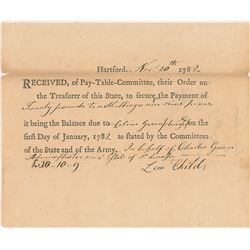 Hartford, Nov. 20th 1782
RECEIVED, of Pay-Table-Committee, their Order on
the Treasurer of this State, to secure the Payment of
Twenty pounds ten shillings and nine pence
it being the Balance due to Calvin
first Day of January, 1782 as stated by the Committees
of the State and of the Army. In behalf of Charles
Administrator on Estate of
£20-10-9 Lem Childs